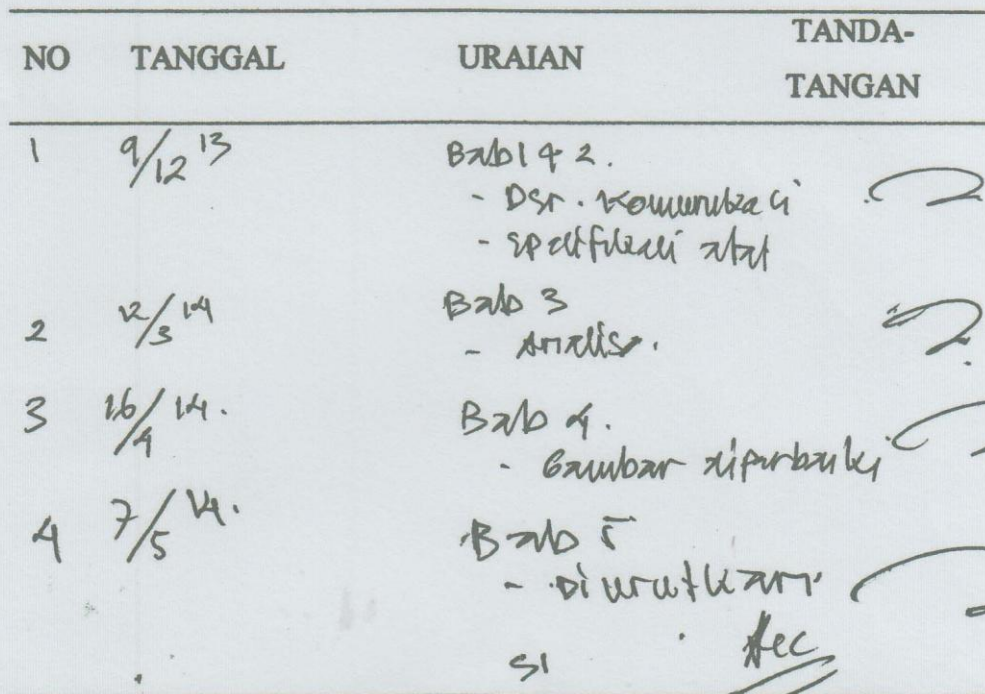 NO TANGGAL URAIAN TANDA-
TANGAN
1 9/12 13 Bab 1 & 2.
- Dsr. Komunikasi
- Spesifikasi alat
2 12/3 14 Bab 3
- Analisa.
3 16/4 14. Bab 4.
- Gambar diperbaiki
4 7/5 14. Bab 5
- Diurutkan
Acc